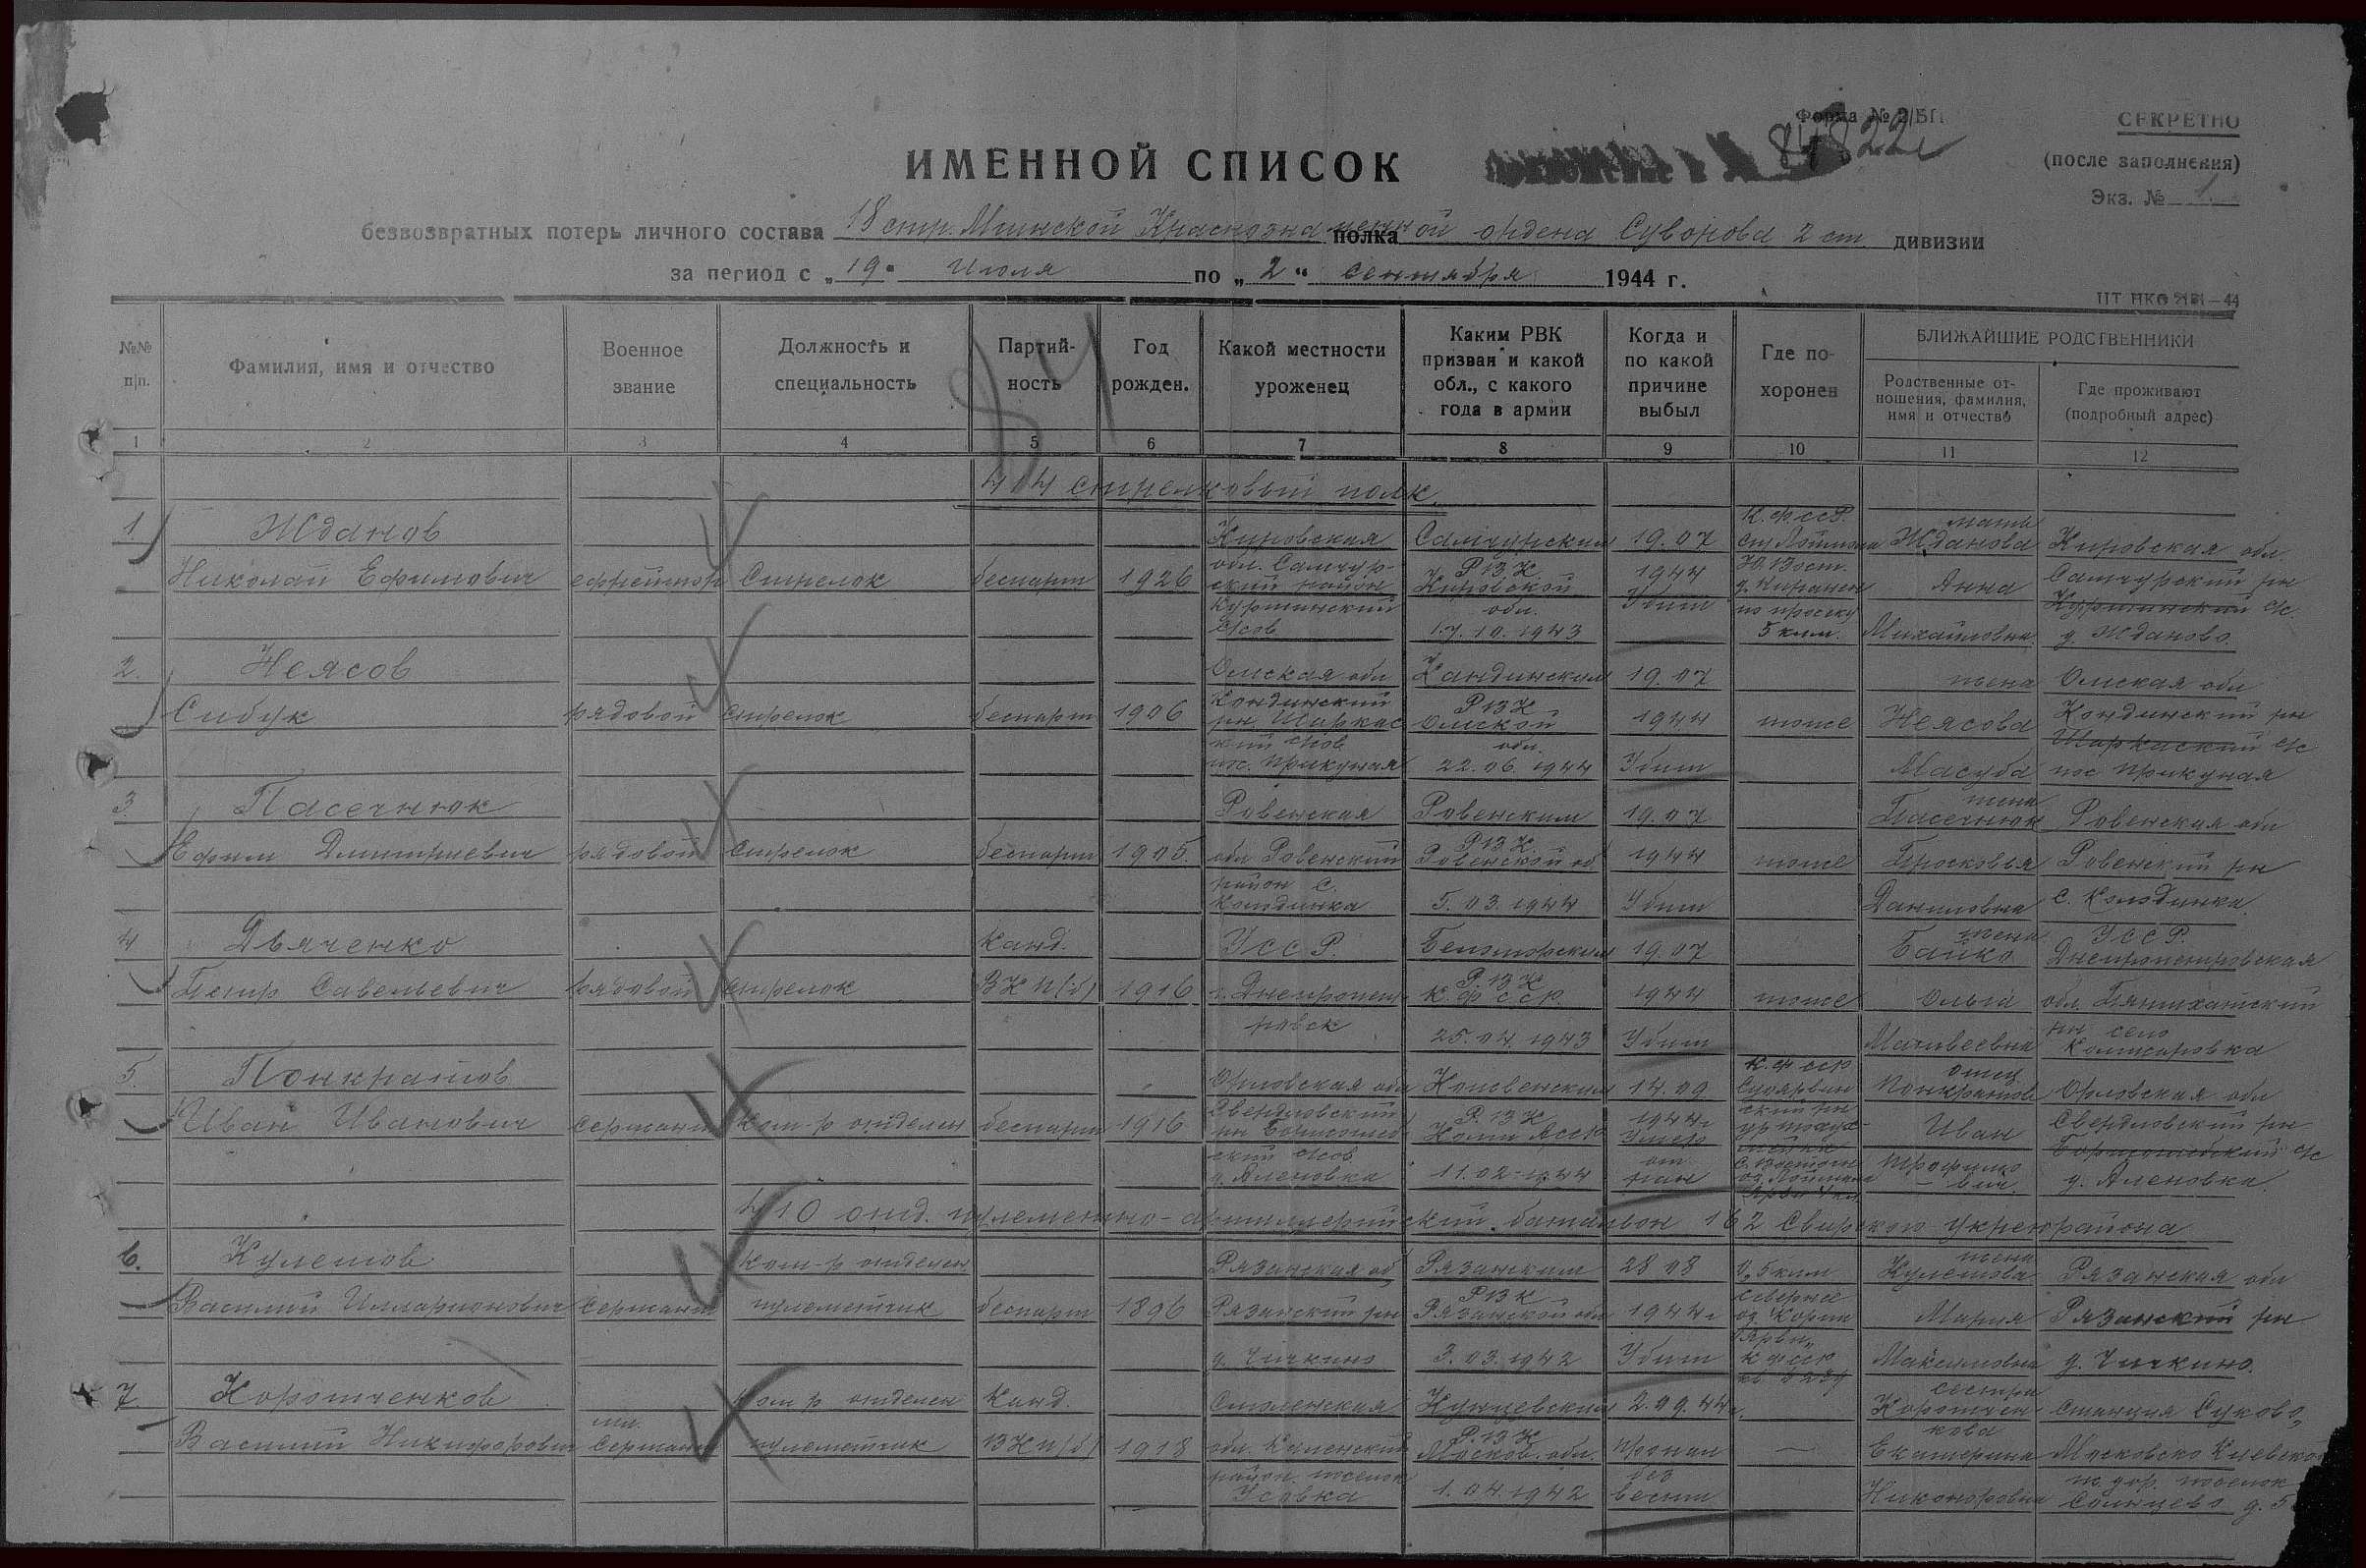 Форма № 2/БП
84822с
СЕКРЕТНО
(после заполнения)
Экз. № 1.
ИМЕННОЙ СПИСОК
безвозвратных потерь личного состава 18 стр. Мгинской Краснознаменной полка ордена Суворова 2 ст. дивизии
за период с „19" Июля по „2" сентября 1944 г.
84
№№ п/п.
Фамилия, имя и отчество
Военное звание
Должность и специальность
Партий-
ность
Год рожден.
Какой местности уроженец
Каким РВК
призван и какой
обл., с какого
года в армии
Когда и
по какой
причине
выбыл
Где по-
хоронен
БЛИЖАЙШИЕ РОДСТВЕННИКИ
Родственные от-
ношения, фамилия,
имя и отчество
Где проживают
(подробный адрес)
1 2 3 4 5 6 7 8 9 10 11 12
414 стрелковый полк.
1 Жданов
Николай Ефимович
ефрейтор
Стрелок
беспарт
1926
Кировская
обл. Санчур-
ский район
с/сов
Санчурским
РВК
Кировской
обл.
17.10.1943
19.07
1944
Убит
К.Ф.ССР.
Ю. Вост.
по просеку
5 клм.
мать
Жданова
Анна
Михайловна
Кировская обл
Санчурский рн
с/с
д. Жданово.
2. Неясов
Сибук
рядовой
стрелок
беспарт
1906
Омская обл
Кондинский
рн Шаркас
кий с/сов
Кандинским
РВК
Омской
обл.
22.06.1944
19.07
1944
Убит
тоже
жена
Неясова
Омская обл
Кондинский рн
Шаркаский с/с
3. Пасечнюк
Ефим Дмитриевич
рядовой
стрелок
беспарт
1905.
Ровенская
обл Ровенский
район с.
Ровенским
РВК.
Ровенской об
5.03.1944
19.07
1944
Убит
тоже
жена
Пасечнюк
Просковья
Даниловна
Ровенская обл
Ровенский рн
с. Колодинка.
4 Дьяченко
Петр Савельевич
рядовой
стрелок
Канд.
ВКП(б)
1916
УССР.
г. Днепропет
ровск
Беломорским
РВК
КФССР.
25.04.1943
19.07
1944
Убит
тоже
жена
Байко
Ольга
Матвеевна
УССР.
Днепропетровская
обл. Пятихатский
рн село
Комисаровка
5. Понкратов
Иван Иванович
сержант
Ком-р отделен
беспарт
1916
Орловская обл
Свердловский
с/сов
д. Аленовка
РВК
Коми АССР
11.02-1944
14.09
1944г
Умер
от
ран
К.Ф ССР
отец
Понкратов
Иван
Трофимо
- вич.
Орловская обл
Свердловский рн
с/с
д. Аленовка.
410 отд. пулеметно-артиллерийский батальон 162 Свирского укрепрайона
6. Кулешов
Василий Илларионович
Сержант
Ком-р отделен
пулеметчик
беспарт
1896
Рязанская об
Рязанский рн
д. Чичкино
Рязанским
РВК
Рязанской обл
3.03.1942
28 08
1944г
Убит
0,5 клм
севернее
КФССР
жена
Кулешова
Мария
Максимовна
Рязанская обл
Рязанский рн
д. Чичкино.
7. Коротченков
Василий Никифорович
мл.
Сержант
ком р отделен
пулеметчик
Канд.
ВКП(б)
1918
Смоленская
обл.
район. поселок
Усовка
Кунцевским
РВК
Москов. обл.
1.04.1942
2.09.44г.
Пропал
без
вести
—
сестра
Коротчен-
кова
Екатерина
Станция Суково,
Московско Киевско
ж дор. поселок
Солнцево д. 5